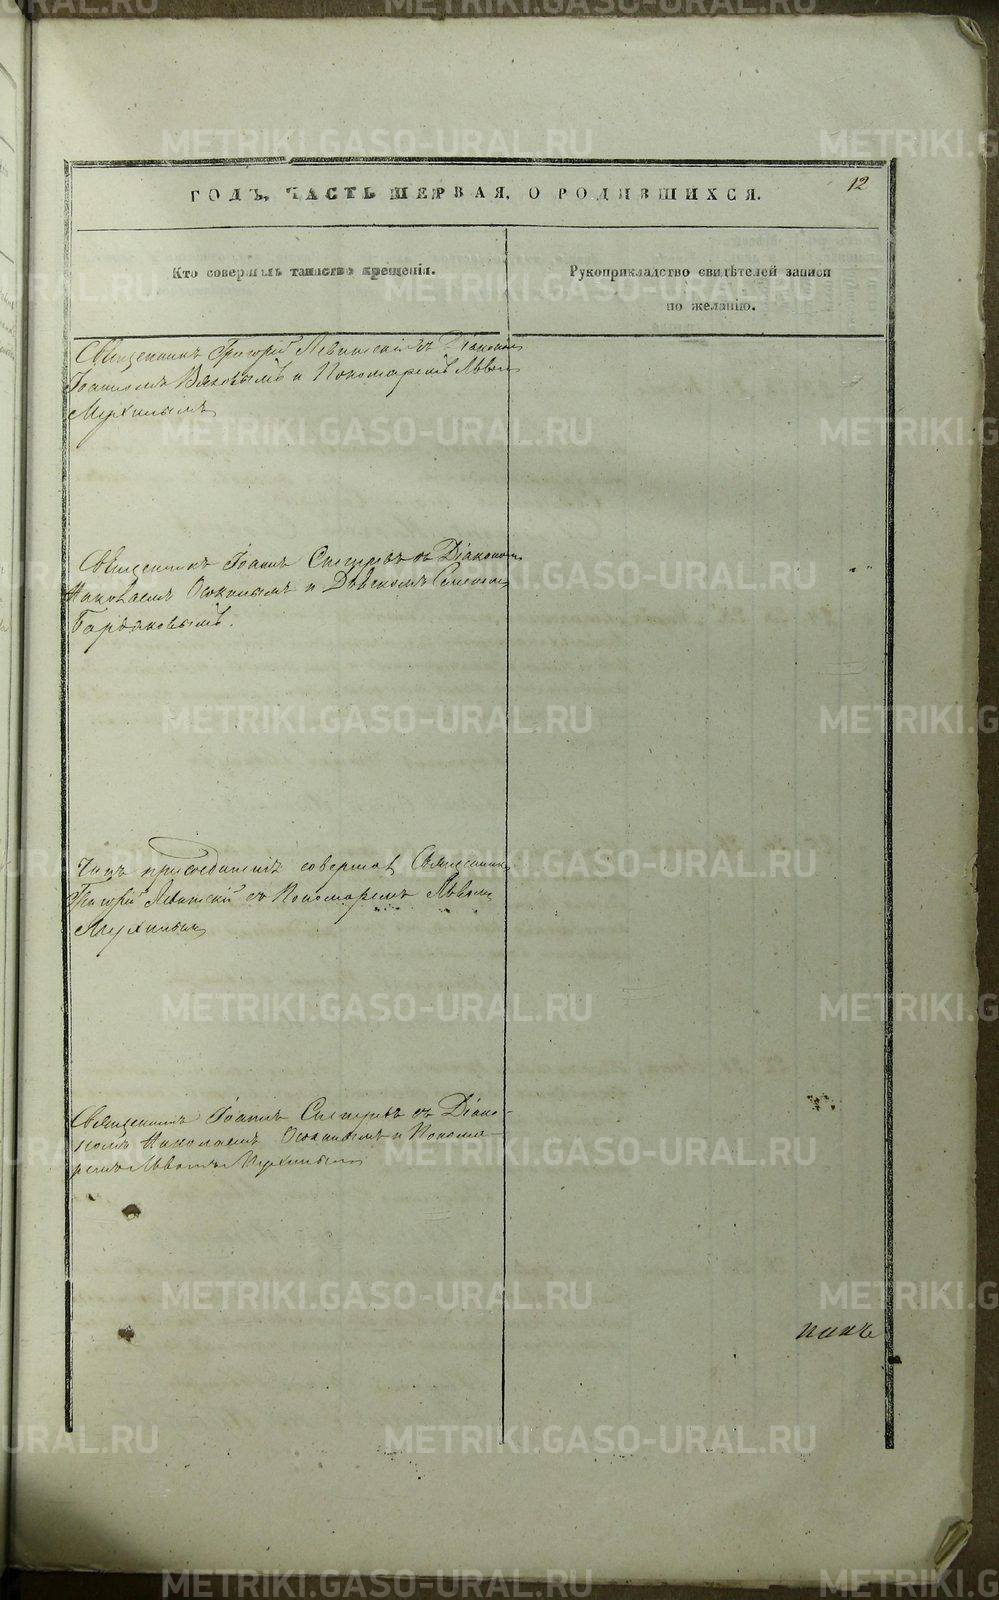 12
ГОДЪ, ЧАСТЬ ПЕРВАЯ, О РОДИВШИХСЯ.
Кто совершалъ таинство крещенія.
Рукоприкладство свидѣтелей записи
по желанію.
Священникъ Григорій Левитскій съ Діакономъ
Іоанномъ и Пономаремъ Львомъ
Мухинымъ
Священникъ Іоаннъ съ Діакономъ
Николаемъ Осокинымъ и
Чинъ присоединенія совершал Священникъ
Григорій Левитскій съ Пономаремъ Львомъ
Мухинымъ
Священникъ Іоаннъ съ Діако-
номъ Николаемъ Осокинымъ и Понома-
ремъ Львомъ Мухинымъ
METRIKI.GASO-URAL.RU